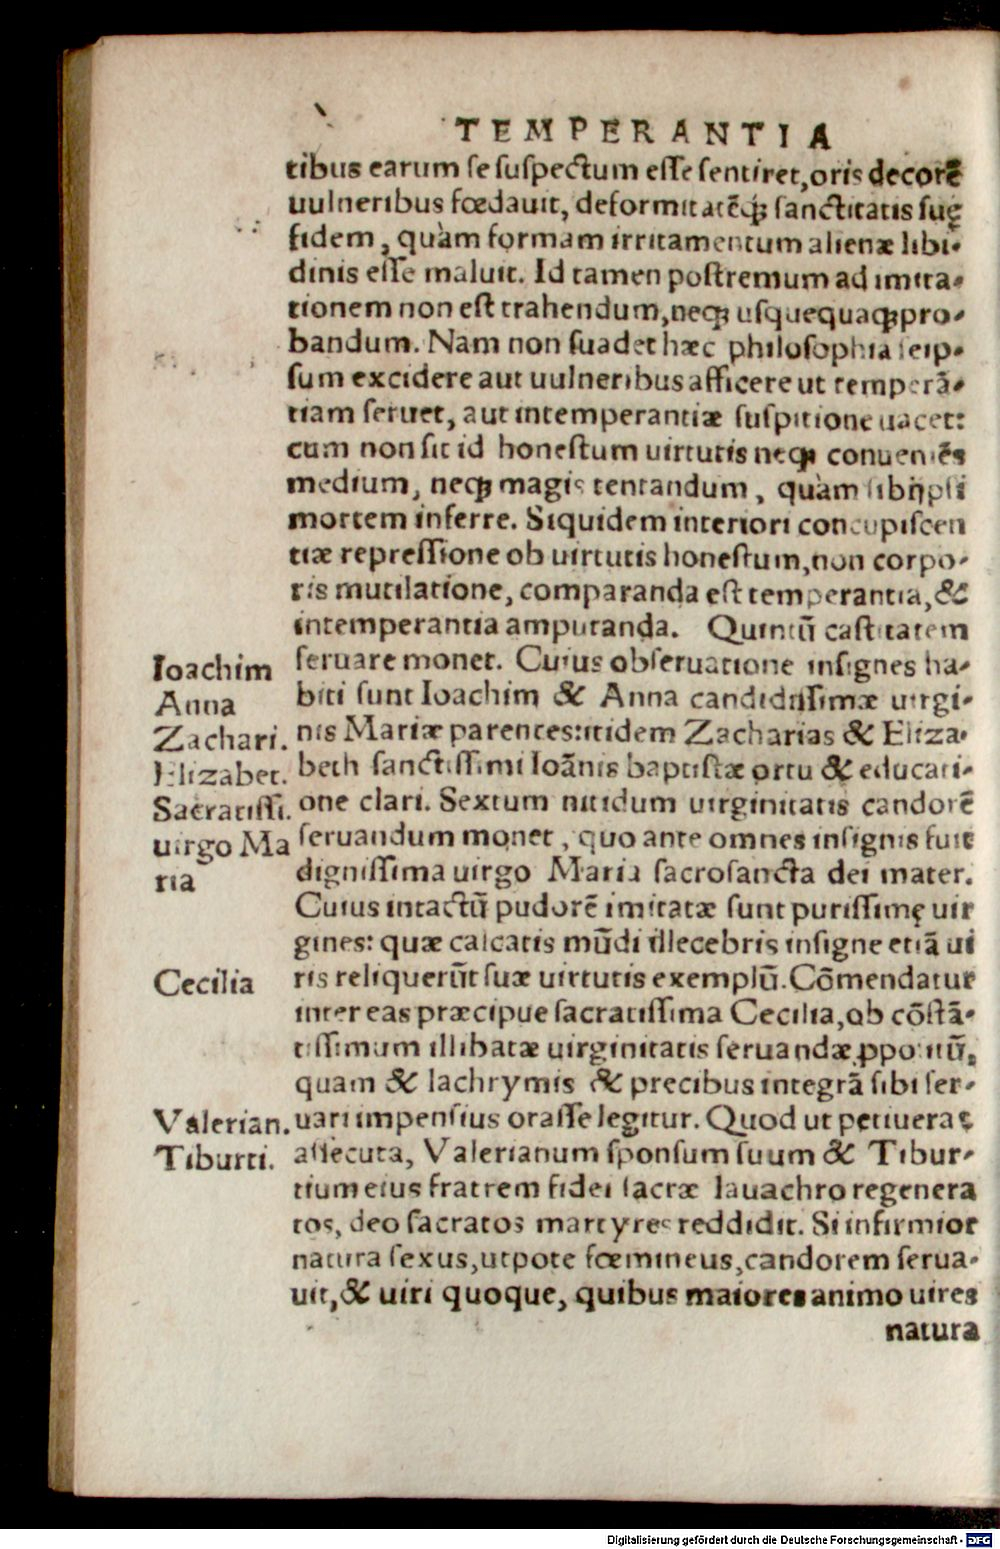 TEMPERANTIA
tibus earum se suspectum esse sentiret, oris decorē
uulneribus fœdauit, deformitatēq́ꝫ sanctitatis suę
fidem, quàm formam irritamentum alienæ libi-
dinis esse maluit. Id tamen postremum ad imita-
tionem non est trahendum, neqꝫ usquequaqꝫ pro-
bandum. Nam non suadet hæc philosophia seip-
sum excidere aut uulneribus afficere ut temperā-
tiam seruet, aut intemperantiæ suspitione uacet:
cum non sit id honestum uirtutis neqꝫ conueniēs
medium, neqꝫ magis tentandum, quàm sibiipsi
mortem inferre. Siquidem interiori concupiscen
tiæ repressione ob uirtutis honestum, non corpo-
ris mutilatione, comparanda est temperantia, &
intemperantia amputanda. Quintū castitatem
seruare monet. Cuius obseruatione insignes ha-
biti sunt Ioachim & Anna candidissimæ uirgi-
nis Mariæ parentes: itidem Zacharias & Eliza-
beth sanctissimi Ioānis baptistæ ortu & educati-
one clari. Sextum nitidum uirginitatis candorē
seruandum monet, quo ante omnes insignis fuit
dignissima uirgo Maria sacrosancta dei mater.
Cuius intactū pudorē imitatæ sunt purissimę uir
gines: quæ calcatis mūdi illecebris insigne etiā ui
ris reliquerūt suæ uirtutis exemplū. Cōmendatur
inter eas præcipue sacratissima Cecilia, ob cōstā-
tissimum illibatæ uirginitatis seruandæ ꝓpositū,
quam & lachrymis & precibus integrā sibi ser-
uari impensius orasse legitur. Quod ut petiuerat
assecuta, Valerianum sponsum suum & Tibur-
tium eius fratrem fidei sacræ lauachro regenera
tos, deo sacratos martyres reddidit. Si infirmior
natura sexus, utpote fœmineus, candorem serua-
uit, & uiri quoque, quibus maiores animo uires
natura
Ioachim
Anna
Zachari.
Elizabet.
Sacratissi.
uirgo Ma
ria
Cecilia
Valerian.
Tiburti.
Digitalisierung gefördert durch die Deutsche Forschungsgemeinschaft - DFG